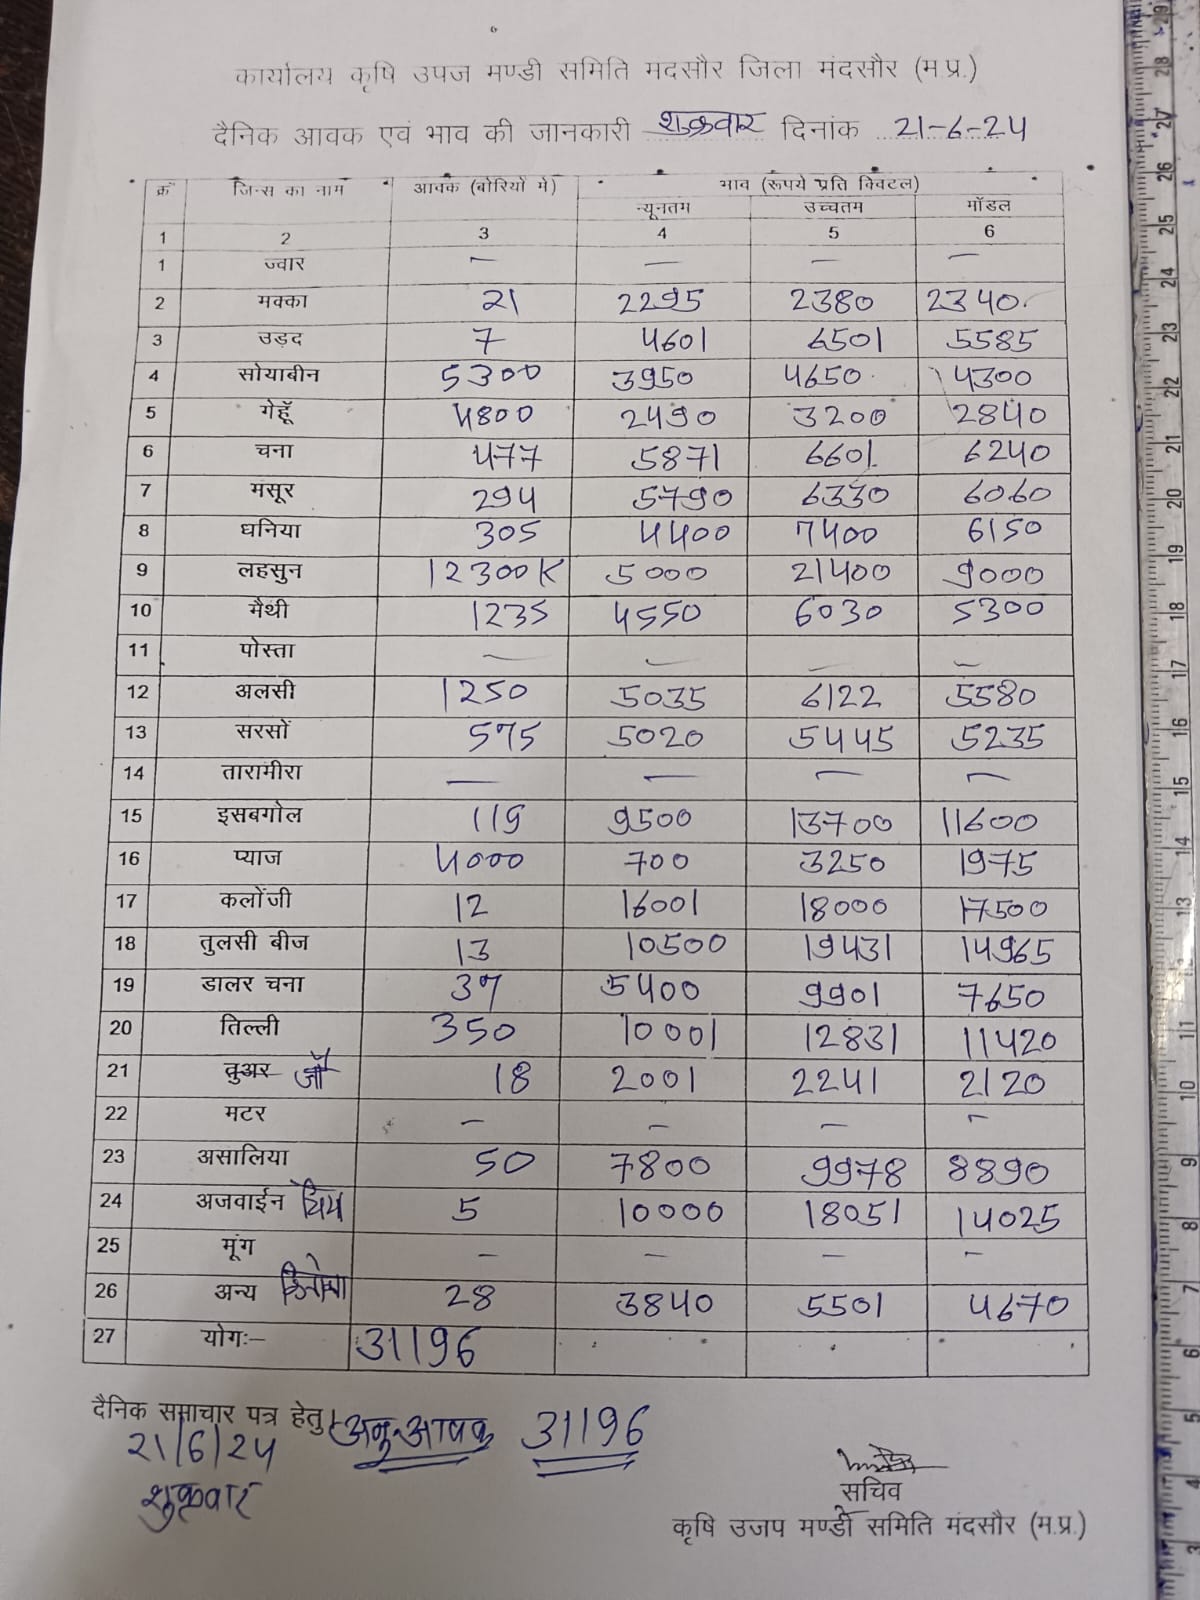 कार्यालय कृषि उपज मण्डी समिति मदसौर जिला मंदसौर (म.प्र.)
दैनिक आवक एवं भाव की जानकारी शुक्रवार दिनांक 21-6-24
क्र जिन्स का नाम आवक (बोरियों मे) भाव (रूपये प्रति क्विटल)
न्यूनतम उच्चतम मॉडल
1 2 3 4 5 6
1 ज्वार — — — —
2 मक्का 21 2295 2380 2340
3 उड़द 7 4601 6501 5585
4 सोयाबीन 5300 3950 4650 4300
5 गेहूॅ 4800 2490 3200 2840
6 चना 477 5871 6601 6240
7 मसूर 294 5790 6330 6060
8 धनिया 305 4400 7400 6150
9 लहसुन 12300K 5000 21400 9000
10 मैथी 1235 4550 6030 5300
11 पोस्ता — — — —
12 अलसी 1250 5035 6122 5580
13 सरसों 575 5020 5445 5235
14 तारामीरा — — — —
15 इसबगोल 119 9500 13700 11600
16 प्याज 4000 700 3250 1975
17 कलोंजी 12 16001 18000 17500
18 तुलसी बीज 13 10500 19431 14965
19 डालर चना 37 5400 9901 7650
20 तिल्ली 350 10001 12831 11420
21 तुअर जौ 18 2001 2241 2120
22 मटर — — — —
23 असालिया 50 7800 9978 8890
24 अजवाईन 5 10000 18051 14025
25 मूंग — — — —
26 अन्य 28 3840 5501 4670
27 योगः— 31196
दैनिक समाचार पत्र हेतु अनु. आवक 31196
21/6/24
शुक्रवार
सचिव
कृषि उजप मण्डी समिति मंदसौर (म.प्र.)
29
28
27
26
25
24
23
22
21
20
19
18
17
16
15
14
13
12
11
10
9
8
7
6
5
4
3